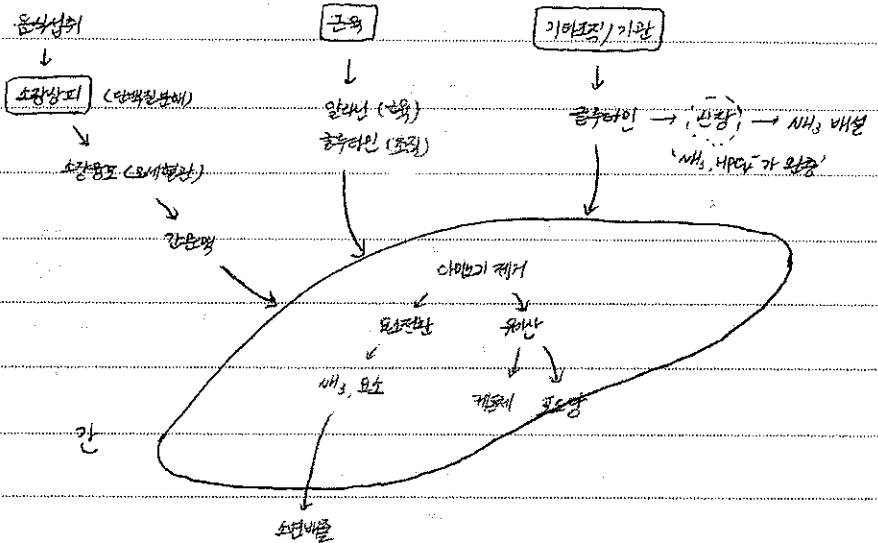 음식섭취
소장상피 (단백질분해)
소장융모 (모세혈관)
간문맥
근육
알라닌 (근육)
글루타민 (조직)
기타조직/기관
글루타민 → 신장 → NH₃ 배설
아미노기 제거
요소전환
유기산
NH₃, 요소
케톤체
포도당
간
소변배출